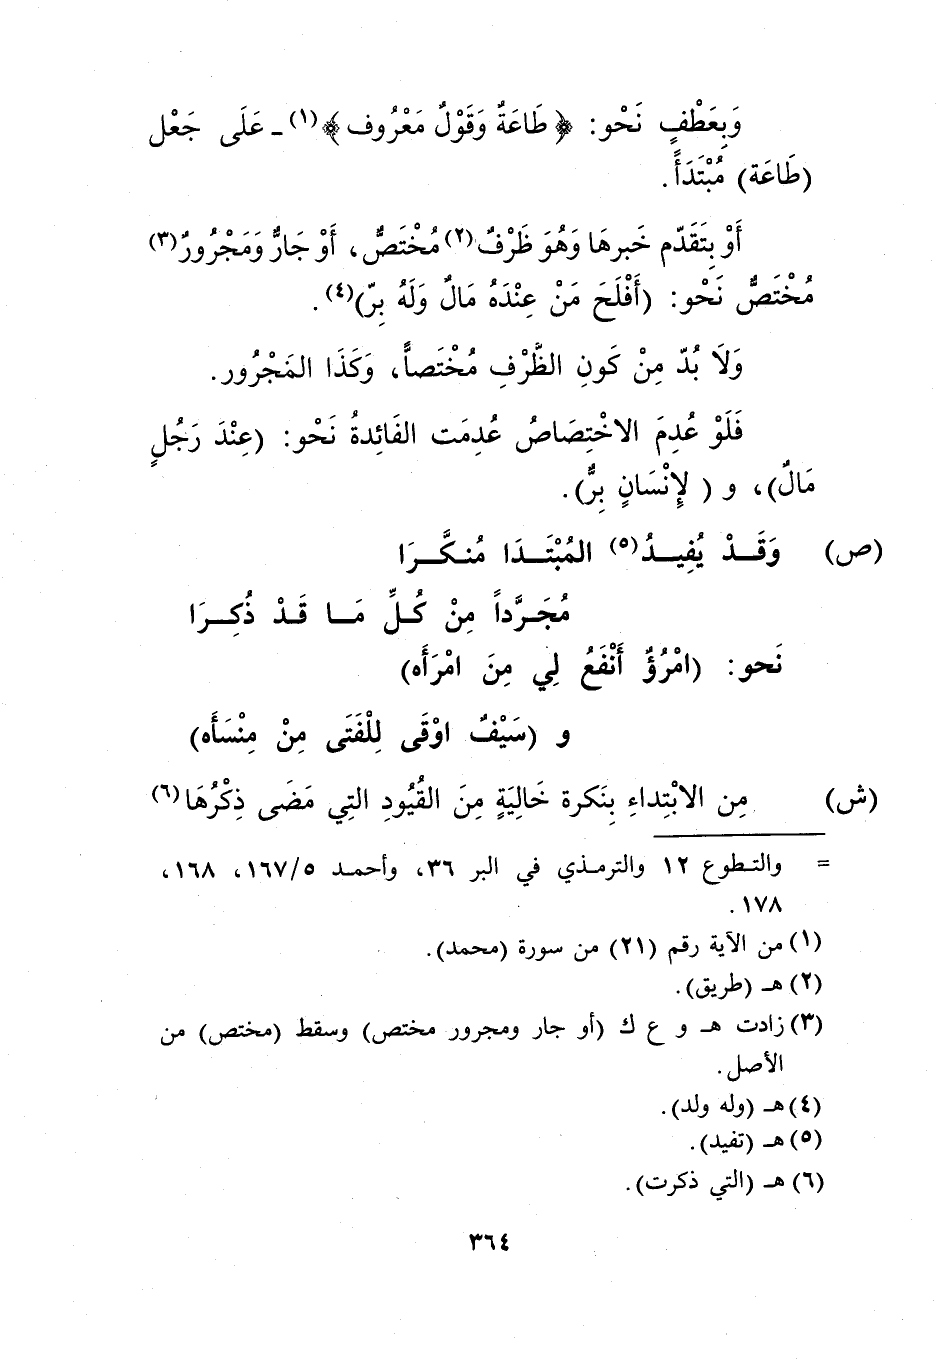 وَبِعَطْفٍ نَحْو: ﴿طَاعَةٌ وَقَوْلٌ مَعْرُوف﴾(١) ـ عَلَى جَعْل
(طَاعَة) مُبْتَدَأً.
أَوْ بِتَقَدّم خَبرهَا وَهُوَ ظَرْفٌ(٢) مُخْتَصٌّ، أَوْ جَارٌّ وَمَجْرُورٌ(٣)
مُخْتَصٌّ نَحْو: (أَفْلَحَ مَنْ عِنْدَهُ مَالٌ وَلَهُ بِرّ)(٤).
وَلَا بُدّ مِنْ كَونِ الظَّرْفِ مُخْتَصاً، وَكَذَا المَجْرُور.
فَلَوْ عُدِمَ الاخْتِصَاصُ عُدِمَت الفَائِدةُ نَحْو: (عِنْدَ رَجُلٍ
مَالٌ)، و ( لِإِنْسَانٍ بِرٌّ).
(ص) وَقَـدْ يُفِيـدُ(٥) المُبْتَـدَا مُنكَّـرَا
مُجَـرَّداً مِنْ كُـلِّ مَـا قَـدْ ذُكِـرَا
نَحو: (امْرُؤٌ أَنْفَعُ لِي مِنَ امْرَأَه)
و (سَيْفٌ اوْقَى لِلْفَتَى مِنْ مِنْسَأَه)
(ش) مِن الابْتِداءِ بِنَكرة خَالِيَةٍ مِنَ القُيُودِ التِي مَضَى ذِكْرُهَا(٦)
= والتـطوع ١٢ والترمـذي في البر ٣٦، وأحمـد ١٦٧/٥، ١٦٨،
١٧٨.
(١) من الآية رقم (٢١) من سورة (محمد).
(٢) هـ (طريق).
(٣) زادت هـ و ع ك (أو جار ومجرور مختص) وسقط (مختص) من
الأصل.
(٤) هـ (وله ولد).
(٥) هـ (تفيد).
(٦) هـ (التي ذكرت).
٣٦٤